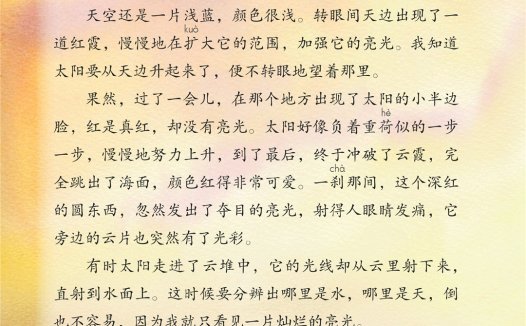 天空还是一片浅蓝，颜色很浅。转眼间天边出现了一
kuò
道红霞，慢慢地在扩大它的范围，加强它的亮光。我知道
太阳要从天边升起来了，便不转眼地望着那里。
果然，过了一会儿，在那个地方出现了太阳的小半边
hè
脸，红是真红，却没有亮光。太阳好像负着重荷似的一步
一步，慢慢地努力上升，到了最后，终于冲破了云霞，完
chà
全跳出了海面，颜色红得非常可爱。一刹那间，这个深红
的圆东西，忽然发出了夺目的亮光，射得人眼睛发痛，它
旁边的云片也突然有了光彩。
有时太阳走进了云堆中，它的光线却从云里射下来，
直射到水面上。这时候要分辨出哪里是水，哪里是天，倒
也不容易，因为我就只看见一片灿烂的亮光。